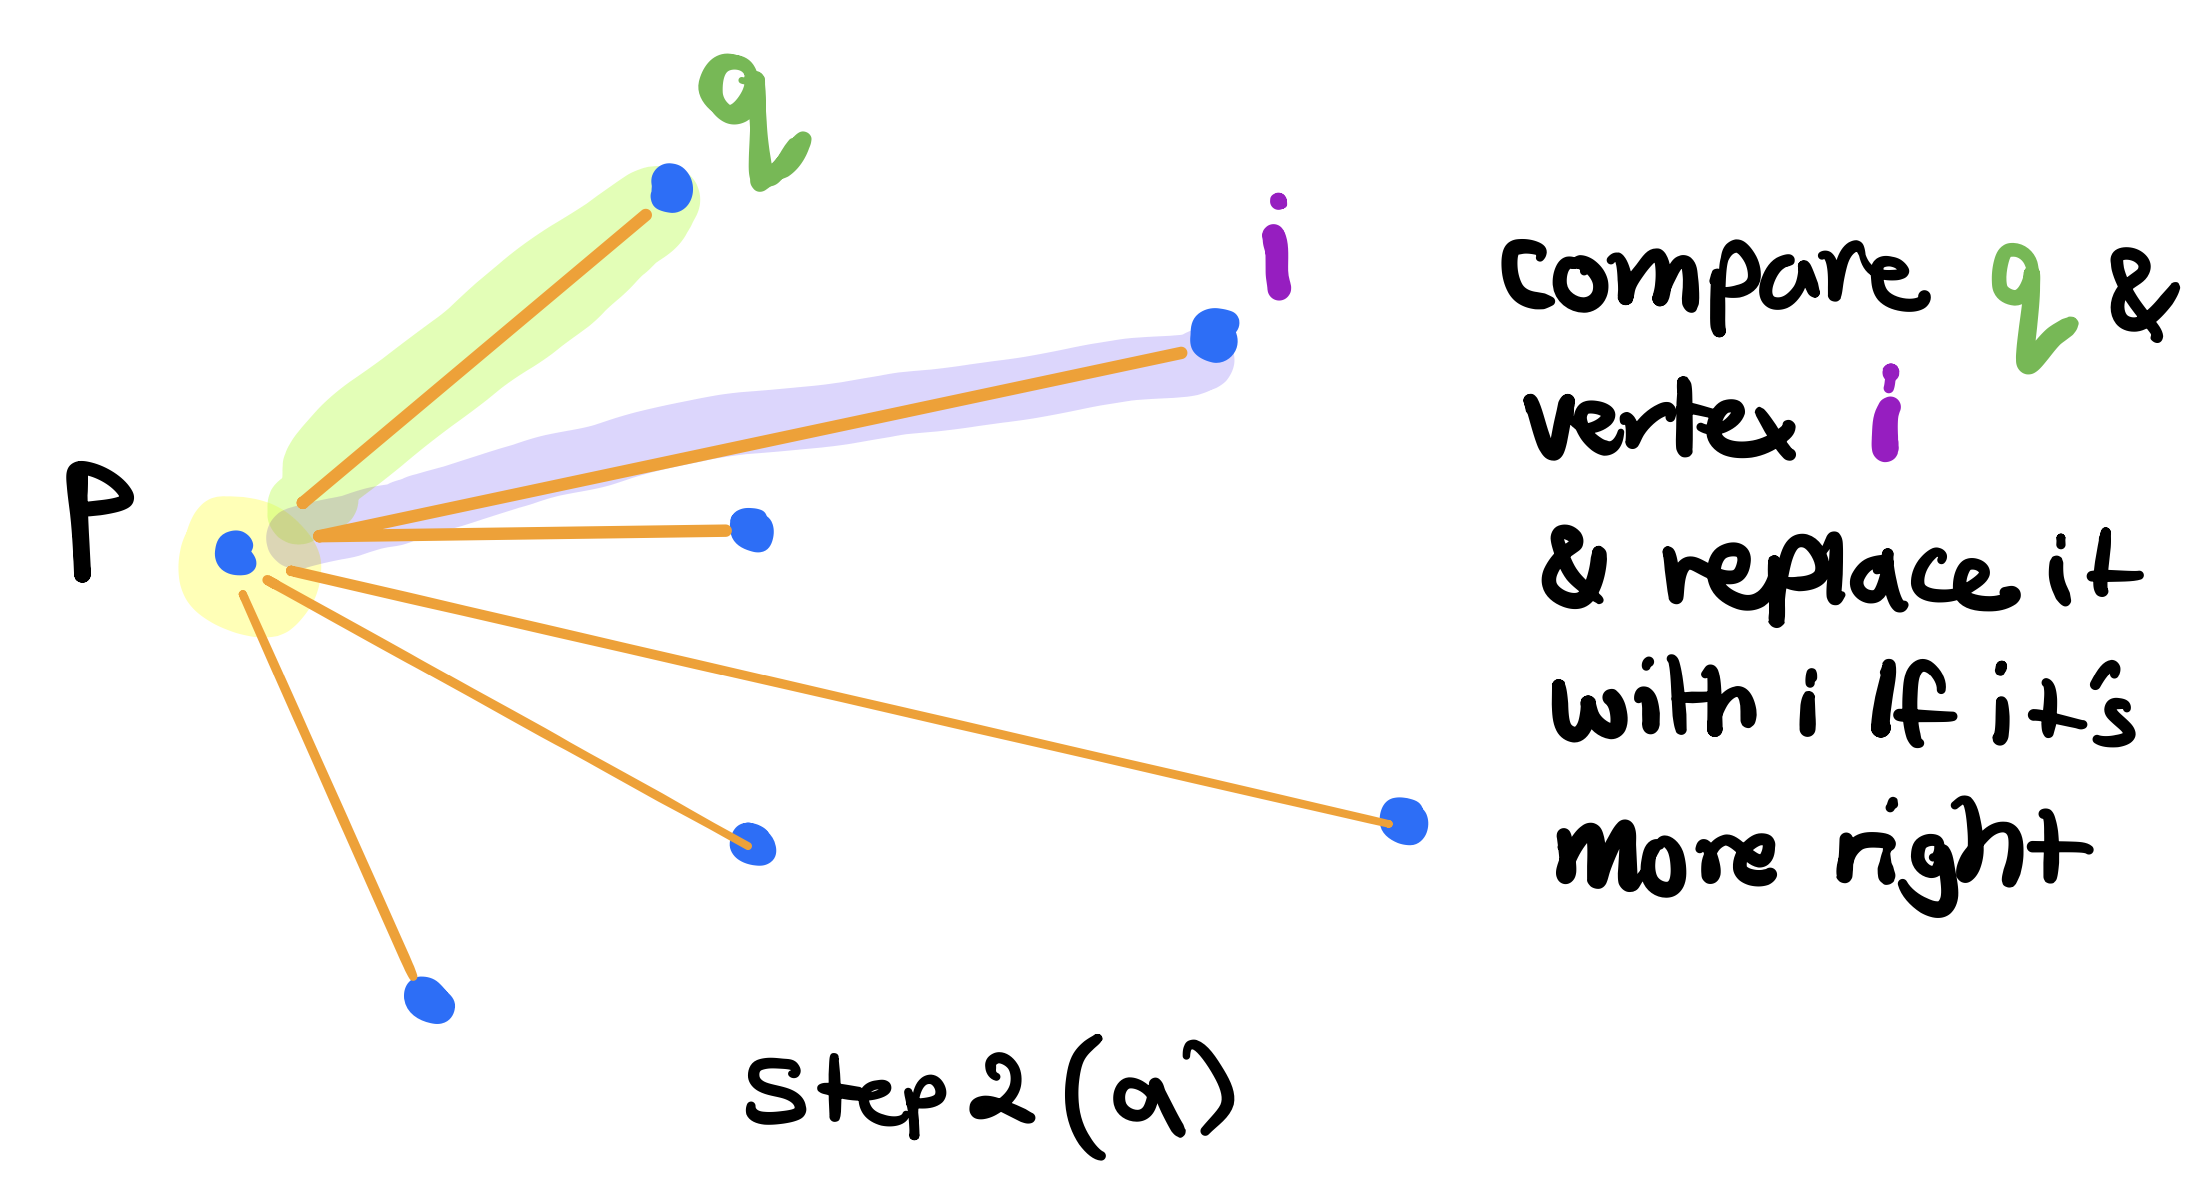 q
i
P
Compare q &
vertex i
& replace it
with i If it's
more right
Step 2 (a)